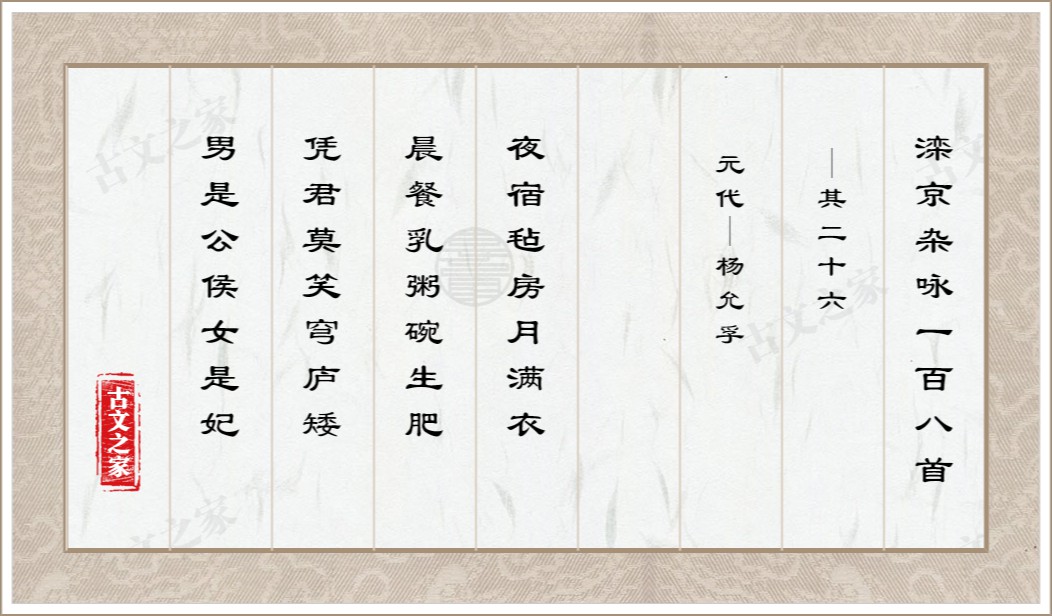 滦京杂咏一百八首
—其二十六
元代—杨允孚
夜宿毡房月满衣
晨餐乳粥碗生肥
凭君莫笑穹庐矮
男是公侯女是妃
古文之家
古文之家
古文之家
古文之家